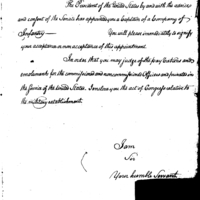 The President of the United States by and with the advice
and consent of the Senate has appointed you a Captain of a Company of
Infantry — You will please immediately to signify
your acceptance or non acceptance of this appointment.
In order that you may judge of the pay, rations and
emoluments for the commissioned and non commissioned Officers and privates in
the service of the United States, I enclose you the act of Congress relative to
the military establishment.
I am
Sir
Your humble Servant